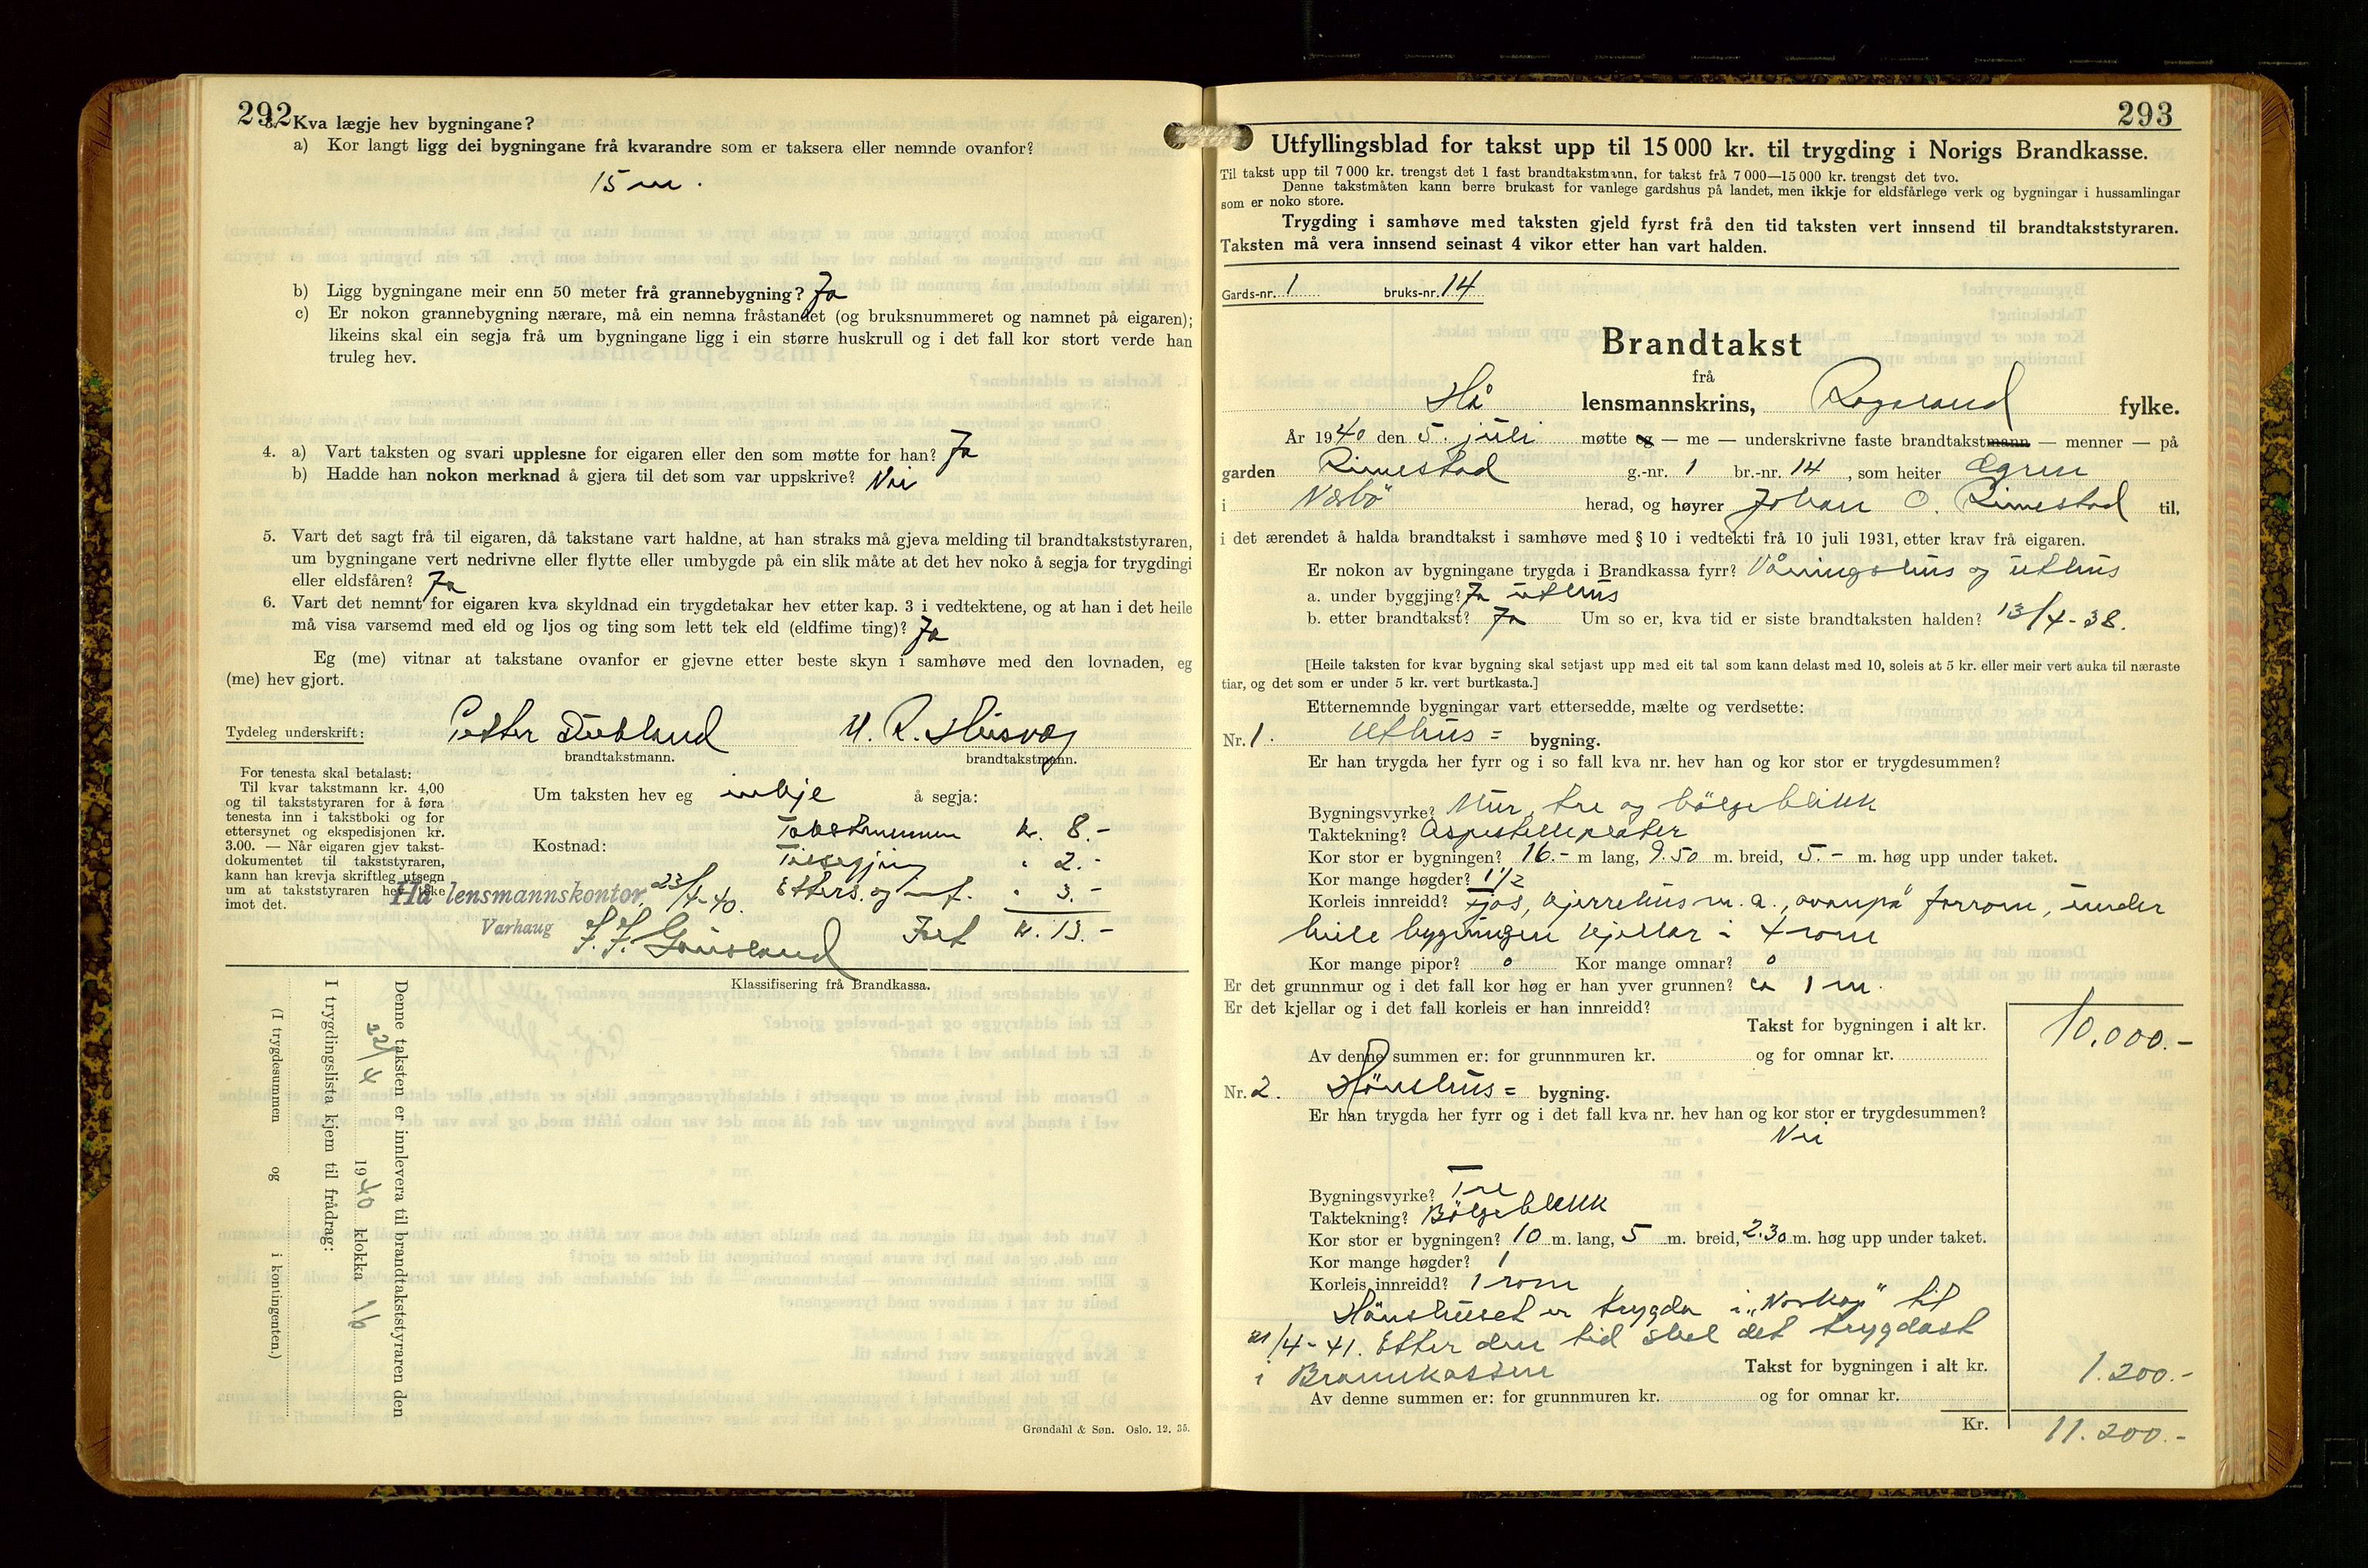 292
3. Kva lægje hev bygningane?
a) Kor langt ligg dei bygningane frå kvarandre som er taksera eller nemnde ovanfor?
15 m.
b) Ligg bygningane meir enn 50 meter frå grannebygning? Ja
c) Er nokon grannebygning nærare, må ein nemna fråstandet (og bruksnummeret og namnet på eigaren);
likeins skal ein segja frå um bygningane ligg i ein større huskrull og i det fall kor stort verde han
truleg hev.
4. a) Vart taksten og svari upplesne for eigaren eller den som møtte for han? Ja
b) Hadde han nokon merknad å gjera til det som var uppskrive? Nei
5. Vart det sagt frå til eigaren, då takstane vart haldne, at han straks må gjeva melding til brandtakststyraren,
um bygningane vert nedrivne eller flytte eller umbygde på ein slik måte at det hev noko å segja for trygdingi
eller eldsfåren? Ja
6. Vart det nemnt for eigaren kva skyldnad ein trygdetakar hev etter kap. 3 i vedtektene, og at han i det heile
må visa varsemd med eld og ljos og ting som lett tek eld (eldfime ting)? Ja
Eg (me) vitnar at takstane ovanfor er gjevne etter beste skyn i samhøve med den lovnaden, eg
(me) hev gjort.
Tydeleg underskrift: Petter M. R. Husvæg
brandtakstmann. brandtakstmann.
For tenesta skal betalast:
Til kvar takstmann kr. 4,00
og til takststyraren for å føra
tenesta inn i takstboki og for
ettersynet og ekspedisjonen kr.
3.00. — Når eigaren gjev takst-
dokumentet til takststyraren,
kann han krevja skriftleg utsegn
um at takststyraren hev teke
imot det.
Um taksten hev eg inkje å segja:
Kostnad: Takstmennen kr. 8.-
Tilsegjing " 2.-
Etters. og innf. " 3.-
Iret kr. 13.-
Hå lensmannskontor, 23/4-40.
Varhaug
Klassifisering frå Brandkassa.
Denne taksten er innlevera til brandtakststyraren den
22/4 1940 klokka 16
I trygdingslista kjem til frådrag:
(I trygdesummen og i kontingenten.)
Grøndahl & Søn. Oslo. 12. 35.
293
Utfyllingsblad for takst upp til 15 000 kr. til trygding i Norigs Brandkasse.
Til takst upp til 7 000 kr. trengst det 1 fast brandtakstmann, for takst frå 7 000—15 000 kr. trengst det tvo.
Denne takstmåten kann berre brukast for vanlege gardshus på landet, men ikkje for eldsfårlege verk og bygningar i hussamlingar
som er noko store.
Trygding i samhøve med taksten gjeld fyrst frå den tid taksten vert innsend til brandtakststyraren.
Taksten må vera innsend seinast 4 vikor etter han vart halden.
Gards-nr. 1 bruks-nr. 14
Brandtakst
frå
Hå lensmannskrins, Rogaland fylke.
År 1940 den 5. juli møtte eg — me — underskrivne faste brandtakstmann — menner — på
garden Rimestad g.-nr. 1 br.-nr. 14, som heiter Øgren
i Nærbö herad, og høyrer Johan O. Rimestad til,
i det ærendet å halda brandtakst i samhøve med § 10 i vedtekti frå 10 juli 1931, etter krav frå eigaren.
Er nokon av bygningane trygda i Brandkassa fyrr? Våningshus og uthus
a. under byggjing? Ja uthus
b. etter brandtakst? Ja Um so er, kva tid er siste brandtaksten halden? 13/4-38.
[Heile taksten for kvar bygning skal setjast upp med eit tal som kann delast med 10, soleis at 5 kr. eller meir vert auka til næraste
tiar, og det som er under 5 kr. vert burtkasta.]
Etternemnde bygningar vart ettersedde, mælte og verdsette:
Nr. 1. Uthus = bygning.
Er han trygda her fyrr og i so fall kva nr. hev han og kor stor er trygdesummen?
Bygningsvyrke? Mur, tre og bölgeblikk
Taktekning? Aspestelleplater
Kor stor er bygningen? 16.- m lang, 9.50 m. breid, 5.- m. høg upp under taket.
Kor mange høgder? 1 1/2
Korleis innreidd? Fjos, kjerrehus m. a., ovanpå forrom, under
heile bygningen kjellar i 4 rom
Kor mange pipor? 0 Kor mange omnar? 0
Er det grunnmur og i det fall kor høg er han yver grunnen? ca 1 m.
Er det kjellar og i det fall korleis er han innreidd?
Takst for bygningen i alt kr. 10.000.-
Av denne summen er: for grunnmuren kr. og for omnar kr.
Nr. 2. Hönsehus = bygning.
Er han trygda her fyrr og i det fall kva nr. hev han og kor stor er trygdesummen?
Nei
Bygningsvyrke? Tre
Taktekning? Bölgeblikk
Kor stor er bygningen? 10 m. lang, 5 m. breid, 2.30 m. høg upp under taket.
Kor mange høgder? 1
Korleis innreidd? 1 rom
Hönsehuset er trygda i "Norkap" til
21/4-41. Etter den tid skal det trygdast
i Brannkassen Takst for bygningen i alt kr. 1.200.-
Av denne summen er: for grunnmuren kr. og for omnar kr.
Kr. 11.200.-